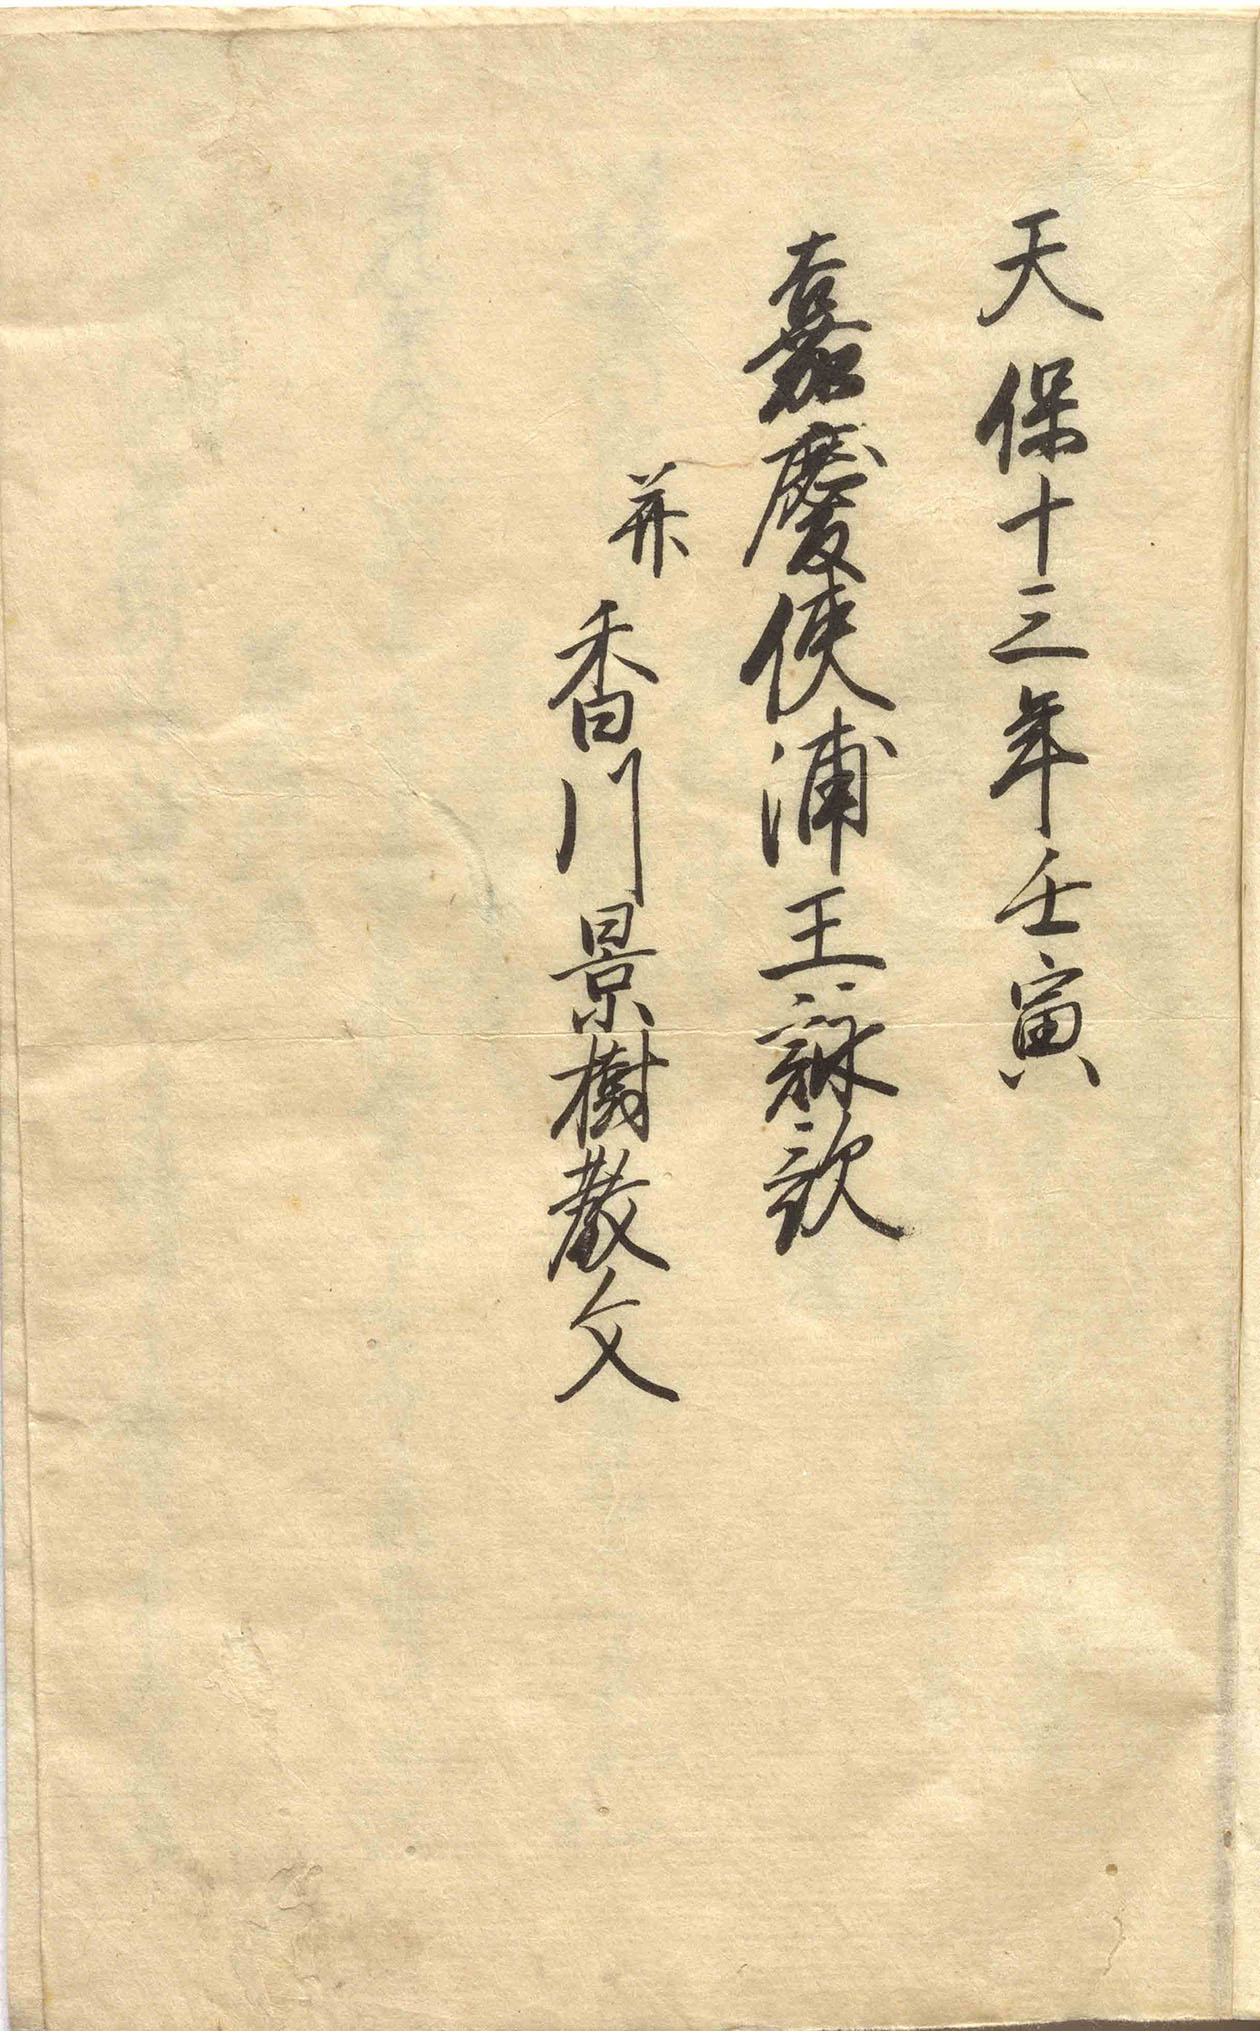 天保十三年壬寅
嘉慶使浦王詠歌
并香川景樹散文